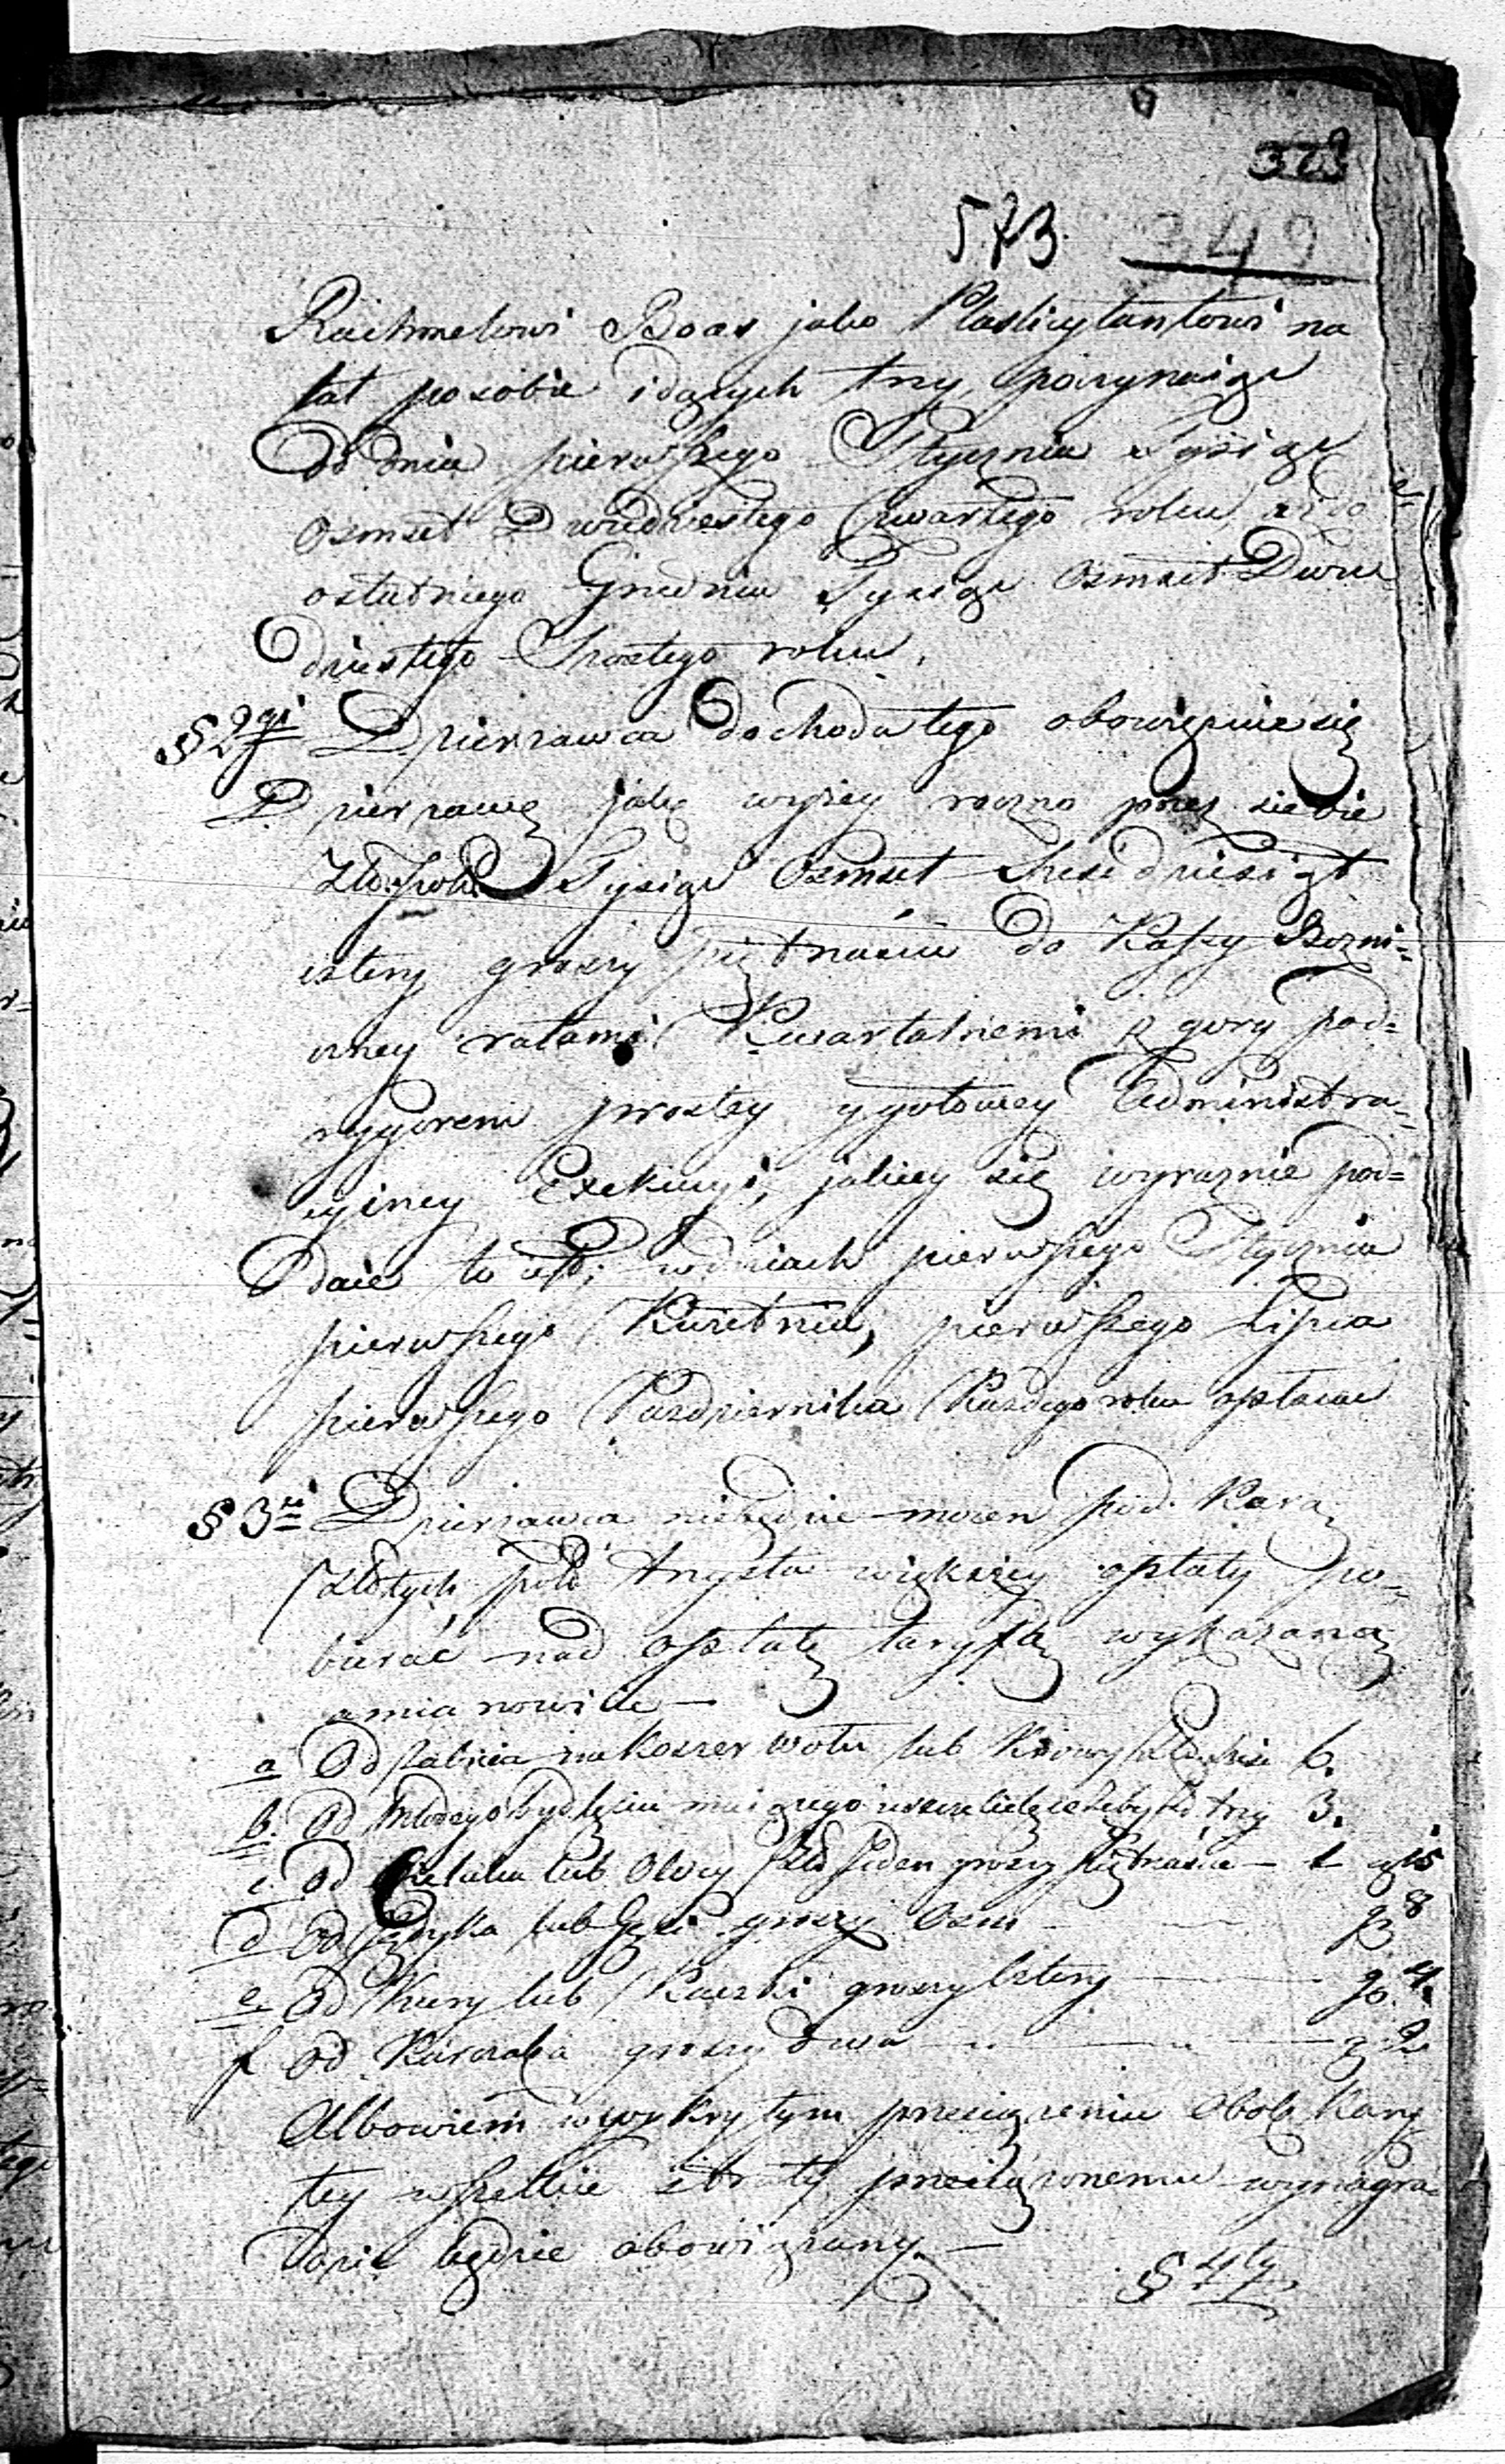 373
573. 349
Rachmelowi Boas jako Plaslicytantowi na
lat posobie idących trzy, poczynaiąc
od dnia pierwszego Stycznia Tysiąc
osmset Dwudziestego Czwartego roku, aż do
ostatniego Grudnia Tysiąc Osmset Dwu
dziestego Szostego roku.
§ 2gi Dzierzawca dochodu tego obowiązuie się
Dzierzawę jak wyzey roczno przez siebie
Złt. pols. Tysiąc Osmset Sześćdziesiąt
cztery groszy piętnaście do Kassy Bożni-
czney ratami Kwartalnemi z gory pod
rygorem prostey y gotowey Administra-
cyiney Exekucyi, jakiey się wyraznie pod-
daie to iest: w dniach pierwszego Stycznia
pierwszego Kwietnia, pierwszego Lipca
pierwszego Pazdziernika Kazdego roku opłacać
§ 3ci Dzierzawca niebędzie mocen pod Karą
Złotych pols. trzysta większey opłaty po-
bierać nad opłatę taryffą wykazaną
a mianowicie —
a Od zabicia na koszer wołu lub Krowy Złt. sześć 6.
b. Od Młodego bydlęcia maiącego ieszcze cielęce zęby Złt. trzy 3.
c. Od Cielaka lub Owcy Złt. Jeden groszy piętnaście — 1 g 15
d Od Jędyka lub Gęsi groszy Osm — gr 8
e. Od Kury lub Kaczki groszy Cztery — gr. 4.
f od Kurczęcia groszy dwa — g 2
Albowiem w wykrytym przeciązeniu Obok Kary
tey wszelkie straty przeciązonemu wynagra-
dzać będzie obowiązany. —
§ 4ty